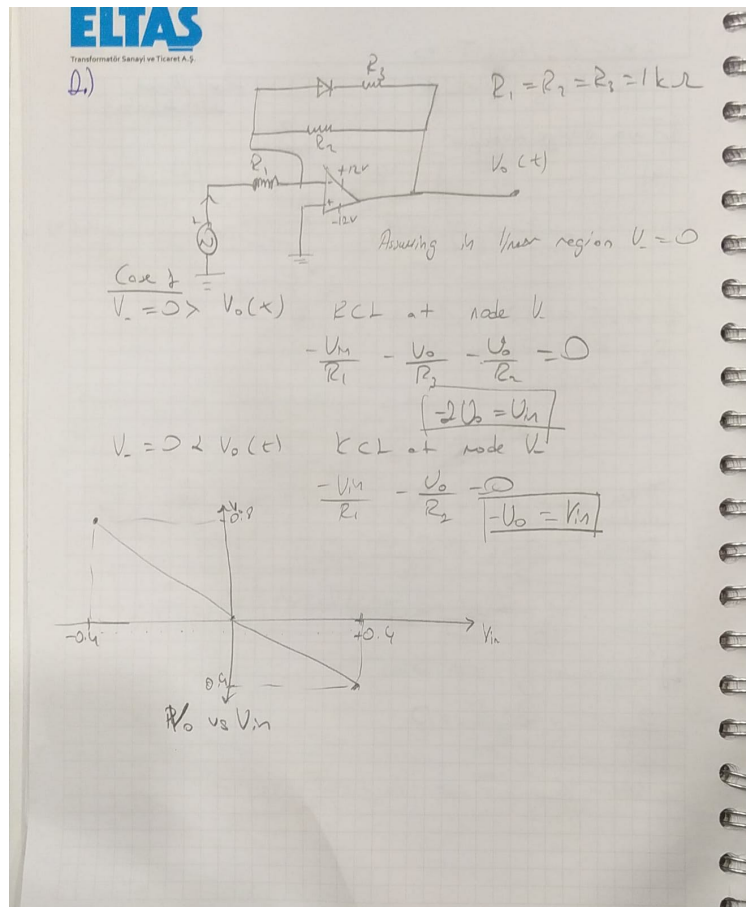 ELTAŞ
Transformatör Sanayi ve Ticaret A.Ş.
Q.)
R3
R1 = R2 = R3 = 1kΩ
R2
R1
+12V
V0(t)
-12V
Assuming in linear region V_ = 0
Case 1
V_ = 0 > V0(t) KCL at node V_
-Vin/R1 - V0/R3 - V0/R2 = 0
-2V0 = Vin
V_ = 0 < V0(t) KCL at node V_
-Vin/R1 - V0/R2 = 0
-V0 = Vin
0.8
-0.4
+0.4
Vin
0.4
V0 vs Vin